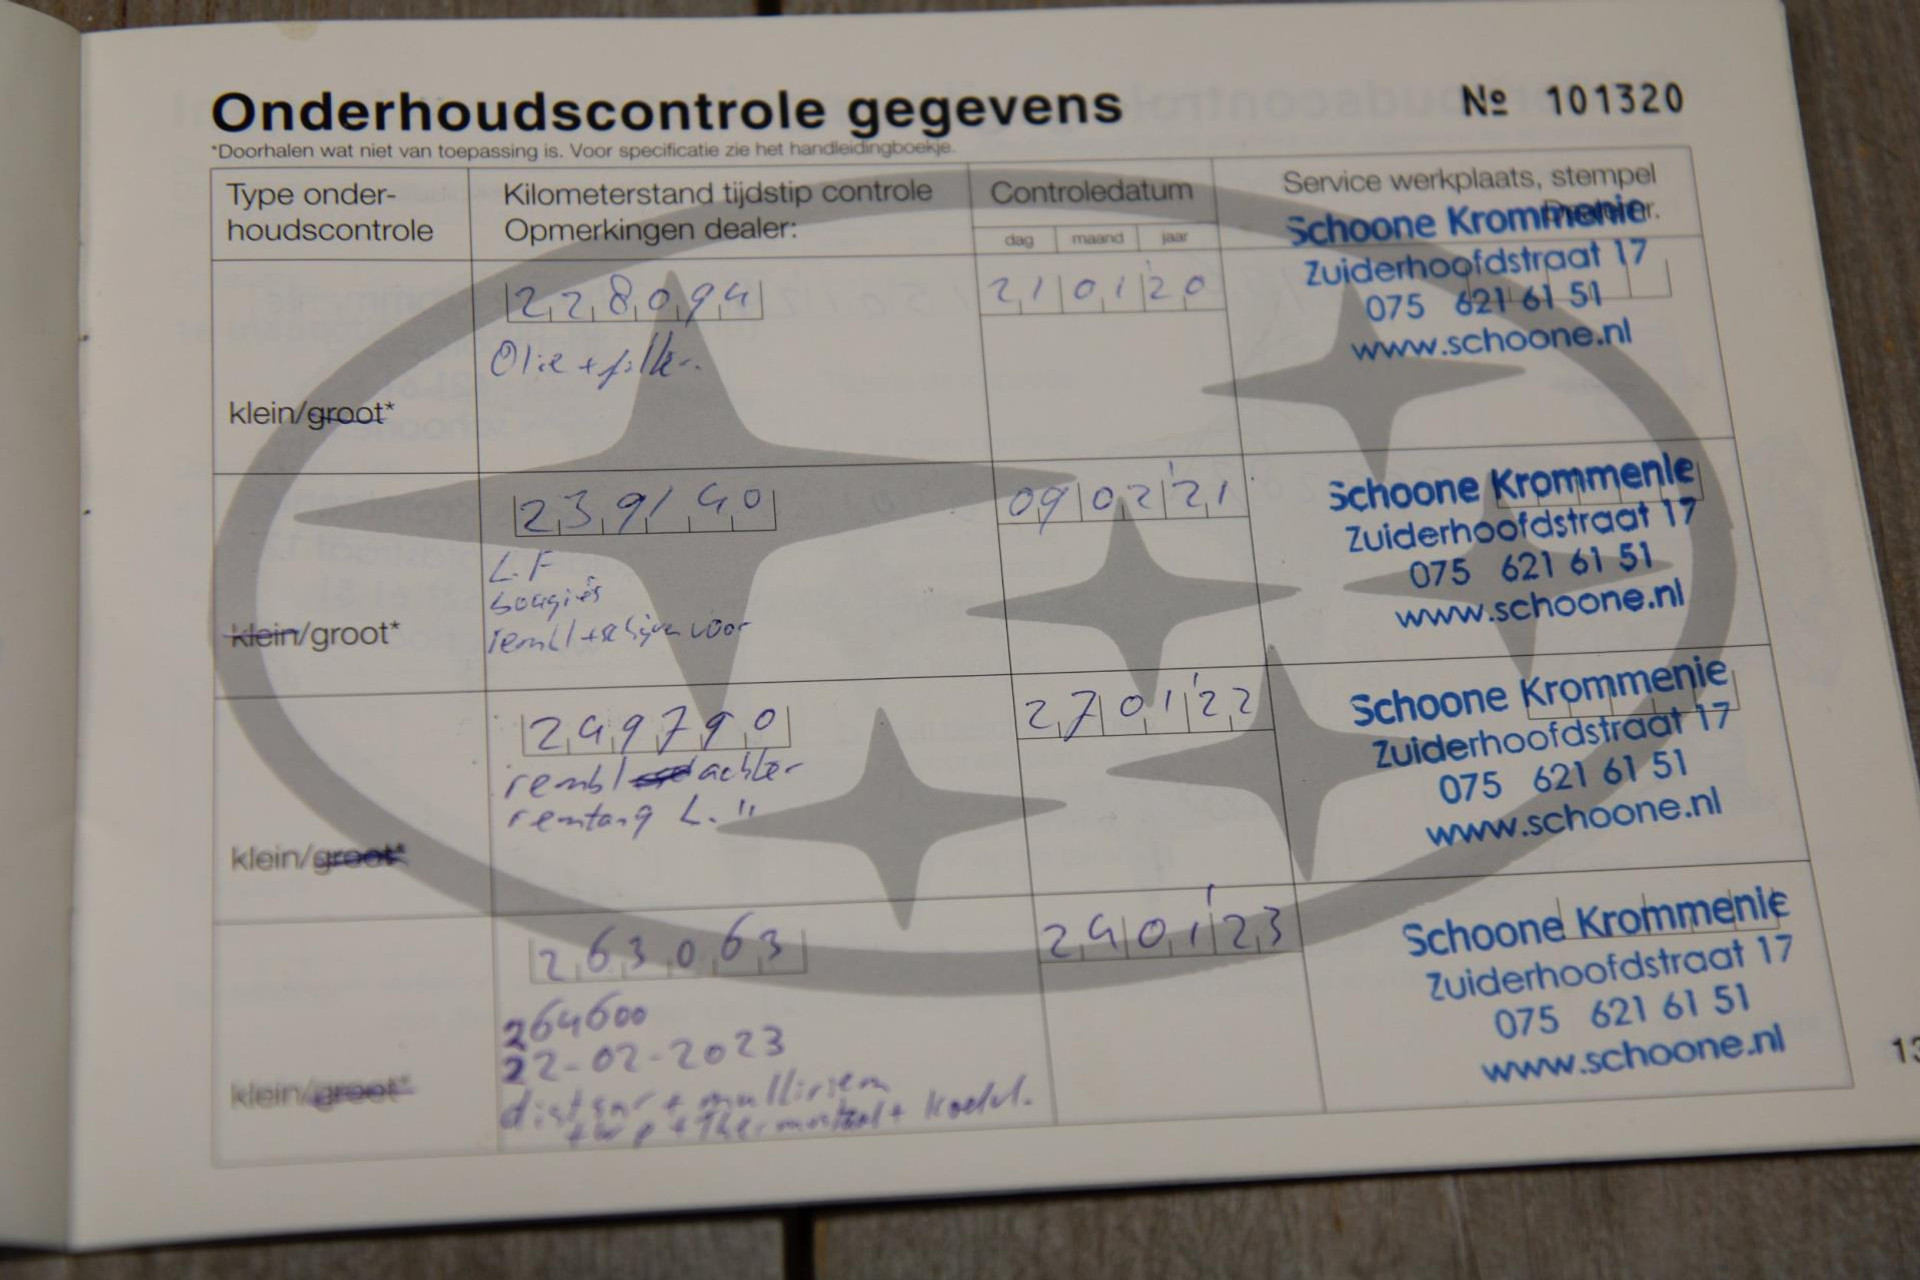 Onderhoudscontrole gegevens
№ 101320
*Doorhalen wat niet van toepassing is. Voor specificatie zie het handleidingboekje.
Type onder-
houdscontrole
Kilometerstand tijdstip controle
Opmerkingen dealer:
Controledatum
dag maand jaar
Service werkplaats, stempel
228094
21 01 '20
Schoone Krommenie
Zuiderhoofdstraat 17
075 621 61 51
www.schoone.nl
Olie + filter
klein/groot*
239140
09 02 '21
Schoone Krommenie
Zuiderhoofdstraat 17
075 621 61 51
www.schoone.nl
L.F
bougies
rembl + schijven voor
klein/groot*
249790
27 01 '22
Schoone Krommenie
Zuiderhoofdstraat 17
075 621 61 51
www.schoone.nl
rembl achter
remtang L. "
klein/groot*
263063
24 01 '23
Schoone Krommenie
Zuiderhoofdstraat 17
075 621 61 51
www.schoone.nl
264600
22-02-2023
distr + multiriem
+ wp + thermostaat + koelvl.
klein/groot*
13